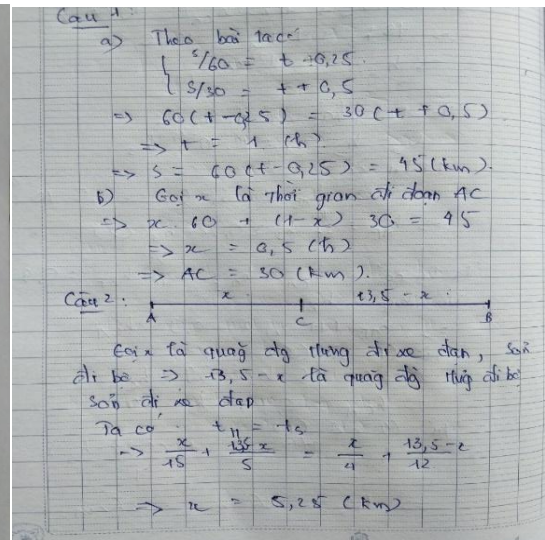 Câu 1
a) Theo bài ta có
{ S/60 = t - 0,25.
{ S/30 = t + 0,5
=> 60(t - 0,25) = 30(t + 0,5)
=> t = 1 (h)
=> S = 60(t - 0,25) = 45 (km).
b) Gọi x là thời gian đi đoạn AC
=> x. 60 + (1-x) 30 = 45
=> x = 0,5 (h)
=> AC = 30 (km).
Câu 2: x 13,5 - x
A C B
Gọi x là quãg đg Hưng đi xe đạp, Sơn
đi bộ => 13,5 - x là quãg đg Hưg đi bộ
Sơn đi xe đạp
Ta có tH = tS
-> x/15 + 13,5 x/5 = x/4 + 13,5 - x/12
=> x = 5,25 (km)